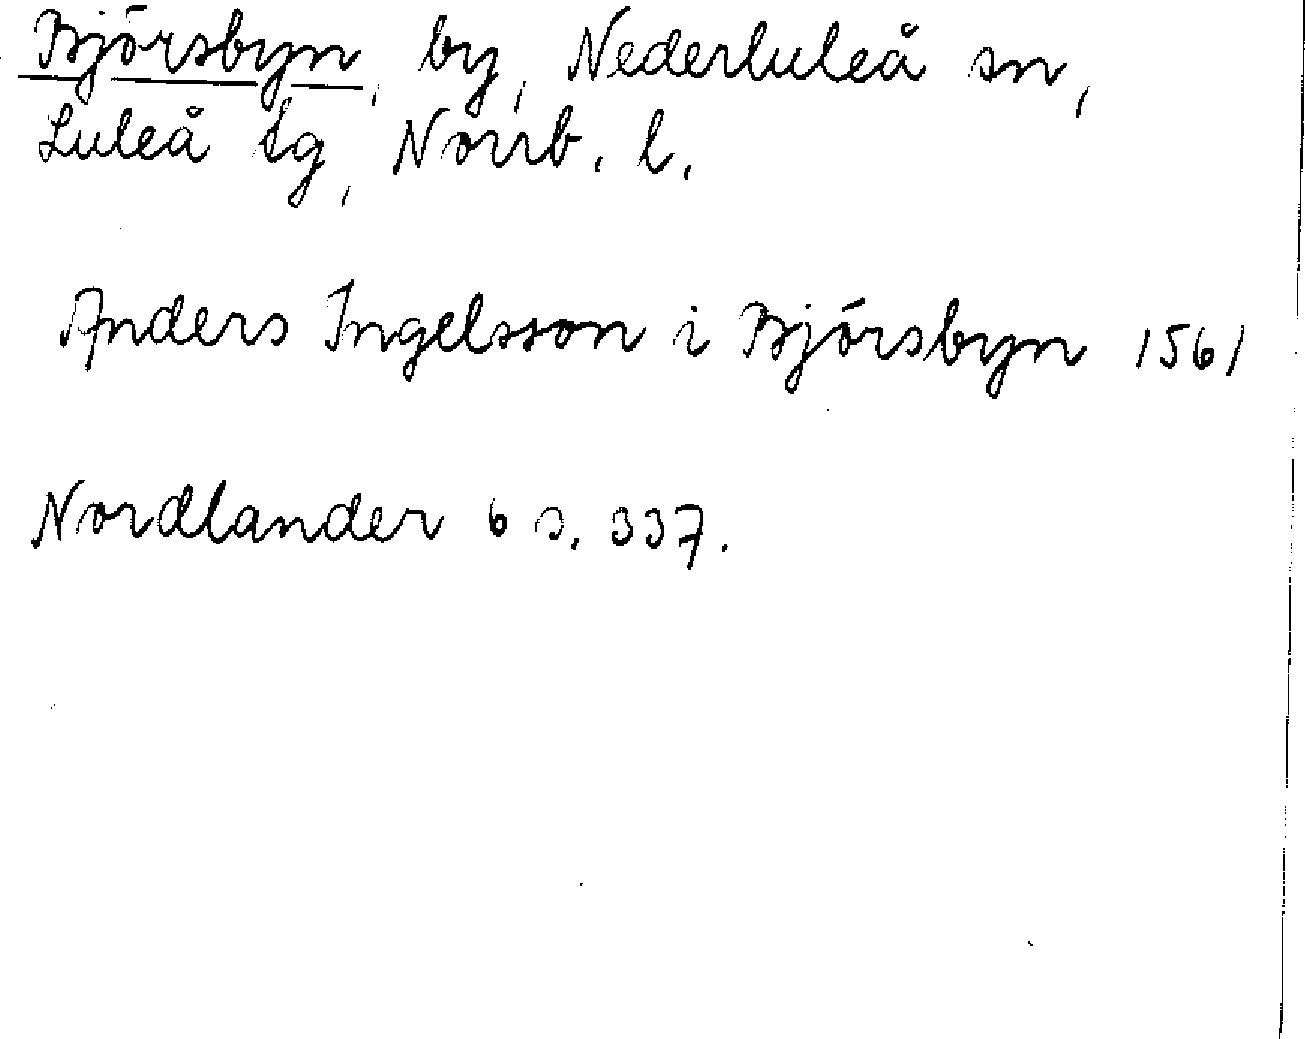 Björsbyn, by, Nederluleå sn,
Luleå tg, Norrb. l.
Anders Ingelsson i Björsbyn 1561
Nordlander 6 s. 337.